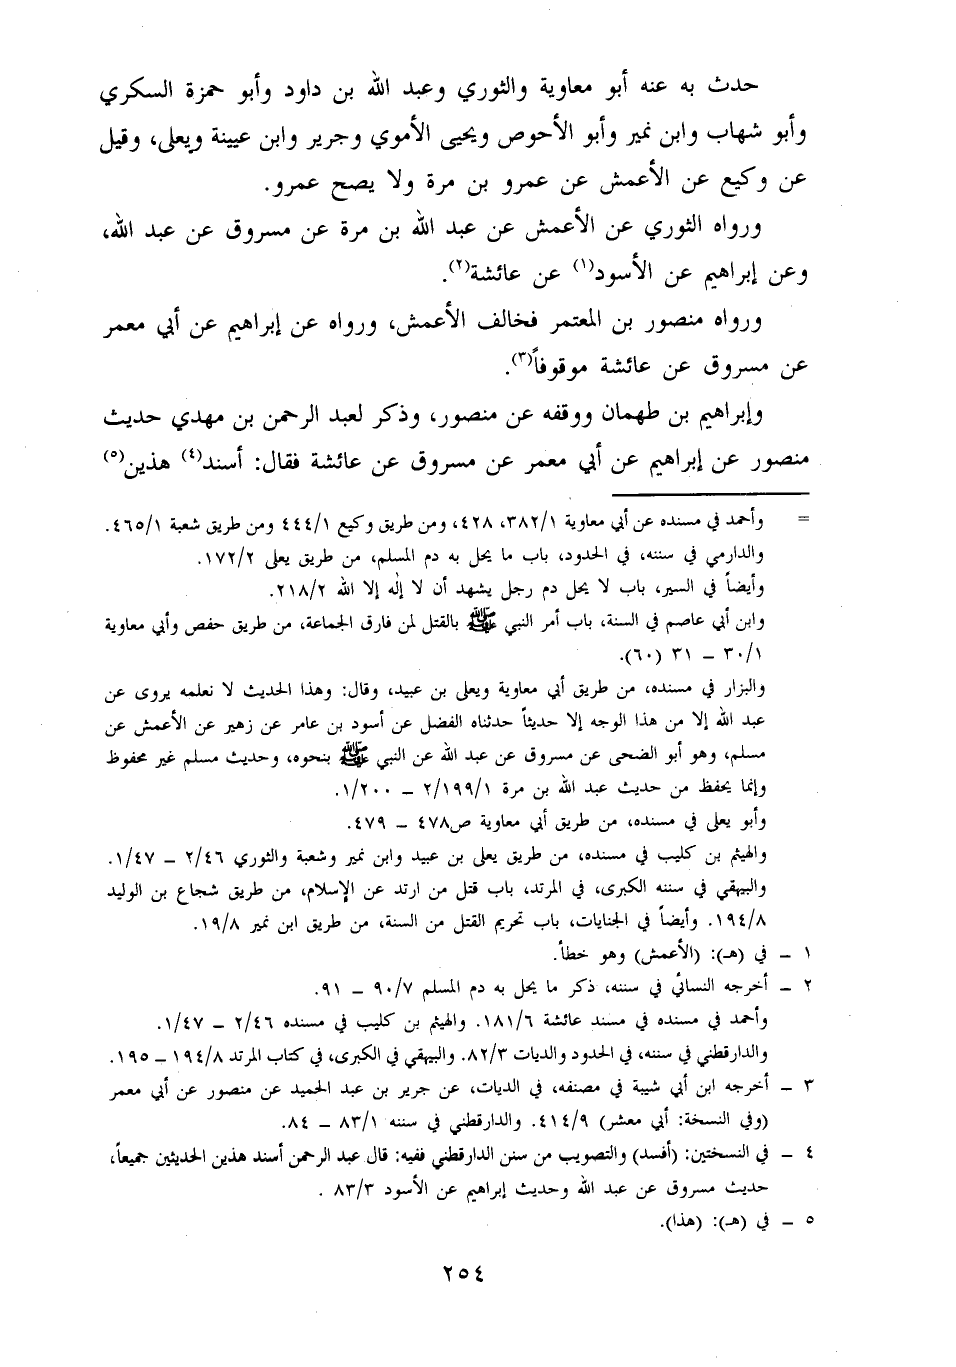 حدث به عنه أبو معاوية والثوري وعبد الله بن داود وأبو حمزة السكري
وأبو شهاب وابن نمير وأبو الأحوص ويحيى الأموي وجرير وابن عيينة ويعلى، وقيل
عن وكيع عن الأعمش عن عمرو بن مرة ولا يصح عمرو.
ورواه الثوري عن الأعمش عن عبد الله بن مرة عن مسروق عن عبد الله،
وعن إبراهيم عن الأسود(١) عن عائشة(٢).
ورواه منصور بن المعتمر فخالف الأعمش، ورواه عن إبراهيم عن أبي معمر
عن مسروق عن عائشة موقوفاً(٣).
وإبراهيم بن طهمان ووقفه عن منصور، وذكر لعبد الرحمن بن مهدي حديث
منصور عن إبراهيم عن أبي معمر عن مسروق عن عائشة فقال: أسند(٤) هذين(٥)
= وأحمد في مسنده عن أبي معاوية ٣٨٢/١، ٤٢٨، ومن طريق وكيع ٤٤٤/١ ومن طريق شعبة ٤٦٥/١.
والدارمي في سننه، في الحدود، باب ما يحل به دم المسلم، من طريق يعلى ١٧٢/٢.
وأيضاً في السير، باب لا يحل دم رجل يشهد أن لا إله إلا الله ٢١٨/٢.
وابن أبي عاصم في السنة، باب أمر النبي ﷺ بالقتل لمن فارق الجماعة، من طريق حفص وأبي معاوية
٣٠/١ – ٣١ (٦٠).
والبزار في مسنده، من طريق أبي معاوية ويعلى بن عبيد، وقال: وهذا الحديث لا نعلمه يروى عن
عبد الله إلا من هذا الوجه إلا حديثاً حدثناه الفضل عن أسود بن عامر عن زهير عن الأعمش عن
مسلم، وهو أبو الضحى عن مسروق عن عبد الله عن النبي ﷺ بنحوه، وحديث مسلم غير محفوظ
وإنما يحفظ من حديث عبد الله بن مرة ٢/١٩٩/١ – ١/٢٠٠.
وأبو يعلى في مسنده، من طريق أبي معاوية ص٤٧٨ – ٤٧٩.
والهيثم بن كليب في مسنده، من طريق يعلى بن عبيد وابن نمير وشعبة والثوري ٢/٤٦ – ١/٤٧.
والبيهقي في سننه الكبرى، في المرتد، باب قتل من ارتد عن الإسلام، من طريق شجاع بن الوليد
١٩٤/٨. وأيضاً في الجنايات، باب تحريم القتل من السنة، من طريق ابن نمير ١٩/٨.
١ – في (هـ): (الأعمش) وهو خطأ.
٢ – أخرجه النسائي في سننه، ذكر ما يحل به دم المسلم ٩٠/٧ – ٩١.
وأحمد في مسنده في مسند عائشة ١٨١/٦. والهيثم بن كليب في مسنده ٢/٤٦ – ١/٤٧.
والدارقطني في سننه، في الحدود والديات ٨٢/٣. والبيهقي في الكبرى، في كتاب المرتد ١٩٤/٨ – ١٩٥.
٣ – أخرجه ابن أبي شيبة في مصنفه، في الديات، عن جرير بن عبد الحميد عن منصور عن أبي معمر
(وفي النسخة: أبي معشر) ٤١٤/٩. والدارقطني في سننه ٨٣/١ – ٨٤.
٤ – في النسختين: (أفسد) والتصويب من سنن الدارقطني ففيه: قال عبد الرحمن أسند هذين الحديثين جميعاً،
حديث مسروق عن عبد الله وحديث إبراهيم عن الأسود ٨٣/٣ .
٥ – في (هـ): (هذا).
٢٥٤